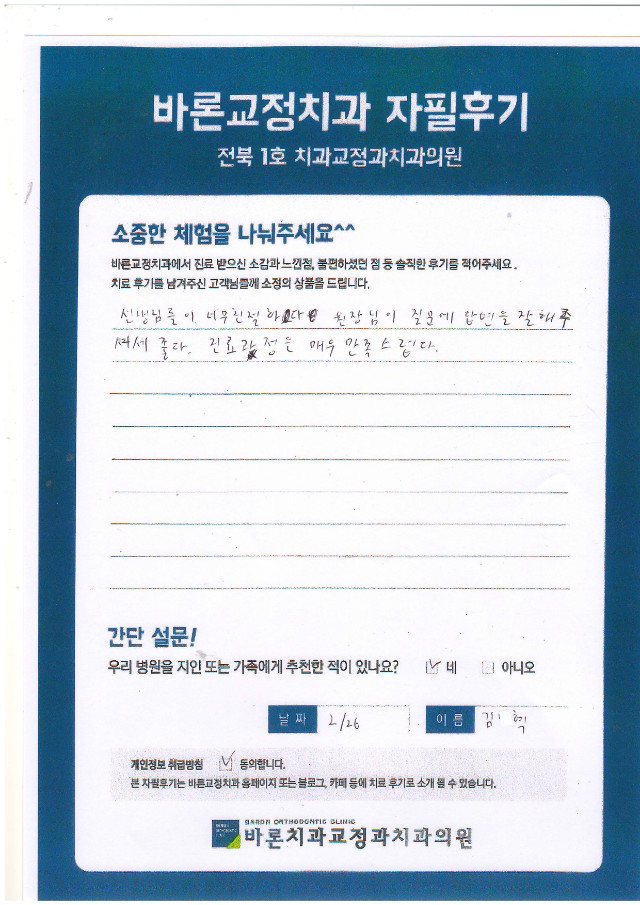 바론교정치과 자필후기
전북 1호 치과교정과치과의원
소중한 체험을 나눠주세요^^
바른교정치과에서 진료 받으신 소감과 느낀점, 불편하셨던 점 등 솔직한 후기를 적어주세요.
치료 후기를 남겨주신 고객님들께 소정의 상품을 드립니다.
선생님들이 너무친절하다 원장님이 질문에 답변을 잘해주
셔서 좋다. 진료과정은 매우 만족스럽다.
간단 설문!
우리 병원을 지인 또는 가족에게 추천한 적이 있나요? 네 아니오
날 짜 2/26 이 름 김 혁
개인정보 취급방침 동의합니다.
본 자필후기는 바른교정치과 홈페이지 또는 블로그, 카페 등에 치료 후기로 소개 될 수 있습니다.
BARON ORTHODONTIC CLINIC
바론치과교정과치과의원